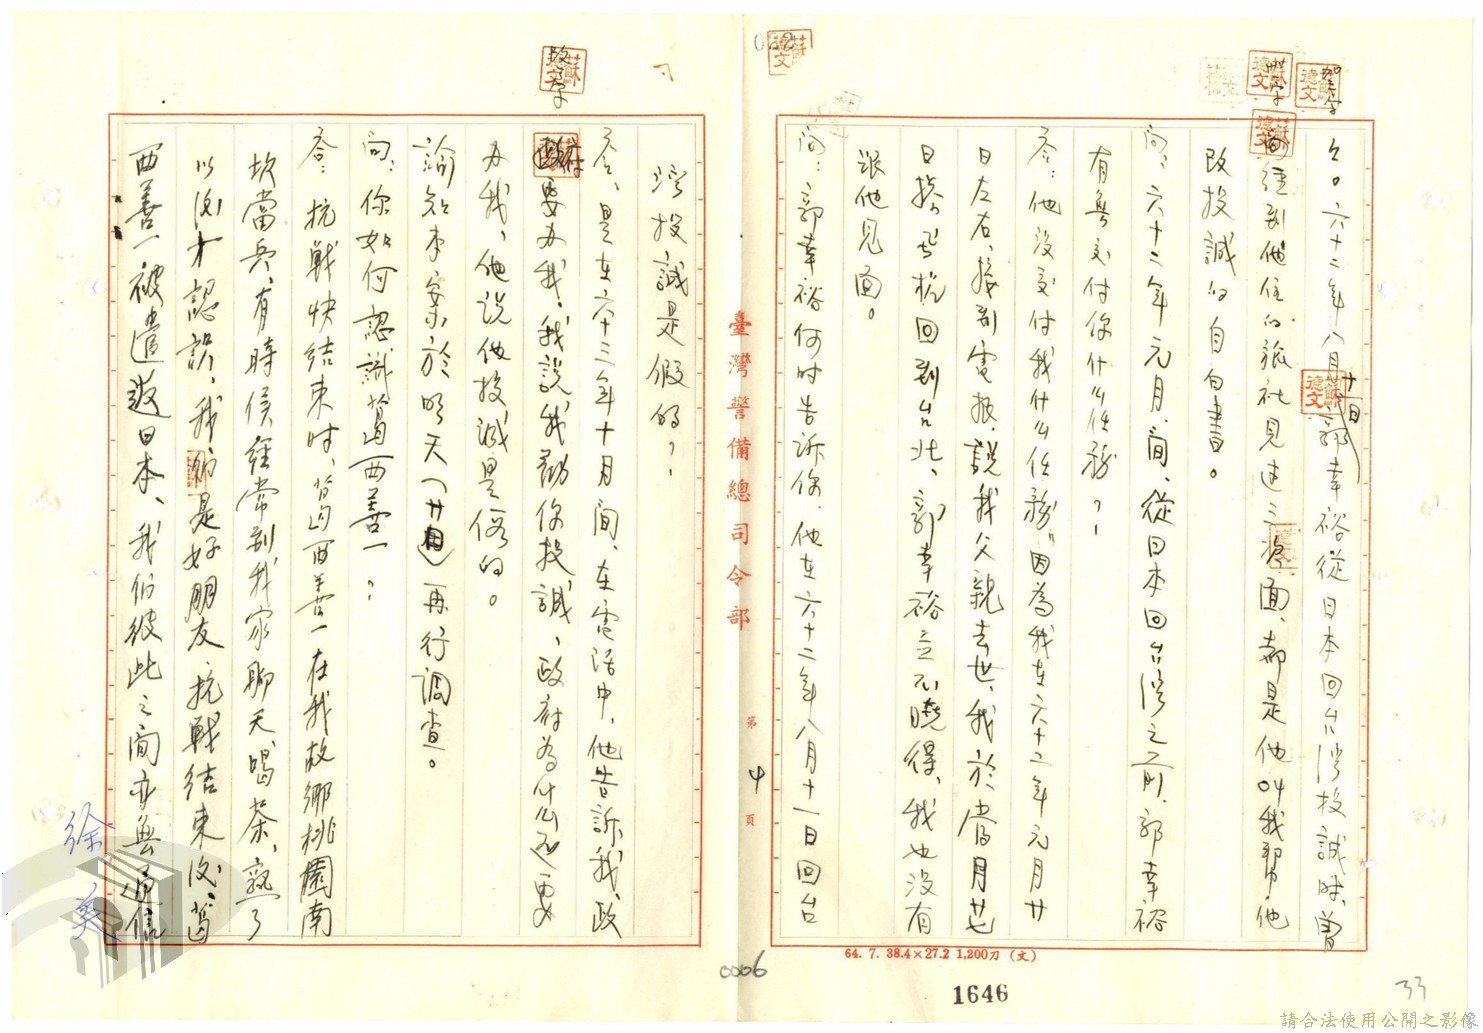 加二字
刪一字
蘇德文
蘇德文
蘇德文
蘇德文
欠。六十二年八月十一日郭幸裕從日本回台灣投誠時、曾
經到他住的旅社見過三次面、都是他叫我幫他
改投誠的自白書。
問：六十二年元月間、從日本回台灣之前、郭幸裕
有無交付你什么任務？
答：他沒交付我什么任務、因為我在六十二年元月廿
日左右、接到電报、說我父親去世、我於當月廿七
日搭飞机回到台北、郭幸裕並不曉得、我也沒有
跟他見面。
問：郭幸裕何时告訴你、他在六十二年八月十一日回台
臺灣警備總司令部
第 4 頁
改一字
蘇德文
灣投誠是假的？
答：是在六十三年十月間、在電话中、他告訴我、政
府要办我、我說我勸你投誠、政府為什么还要
办我、他说他投誠是假的。
諭知本案於明天（廿日）再行調查。
問：你如何認識葛西善一？
答：抗戰快结束时、葛西善一在我故鄉桃園南
坎當兵、有時候經常到我家聊天、喝茶、熟了
以後才認識、我們是好朋友、抗戰结束後、葛
西善一被遣返日本、我们彼此之間亦無通信
徐 美
64. 7. 38.4×27.2 1,200刀（文）
0006
1646
33
請合法使用公開之影像